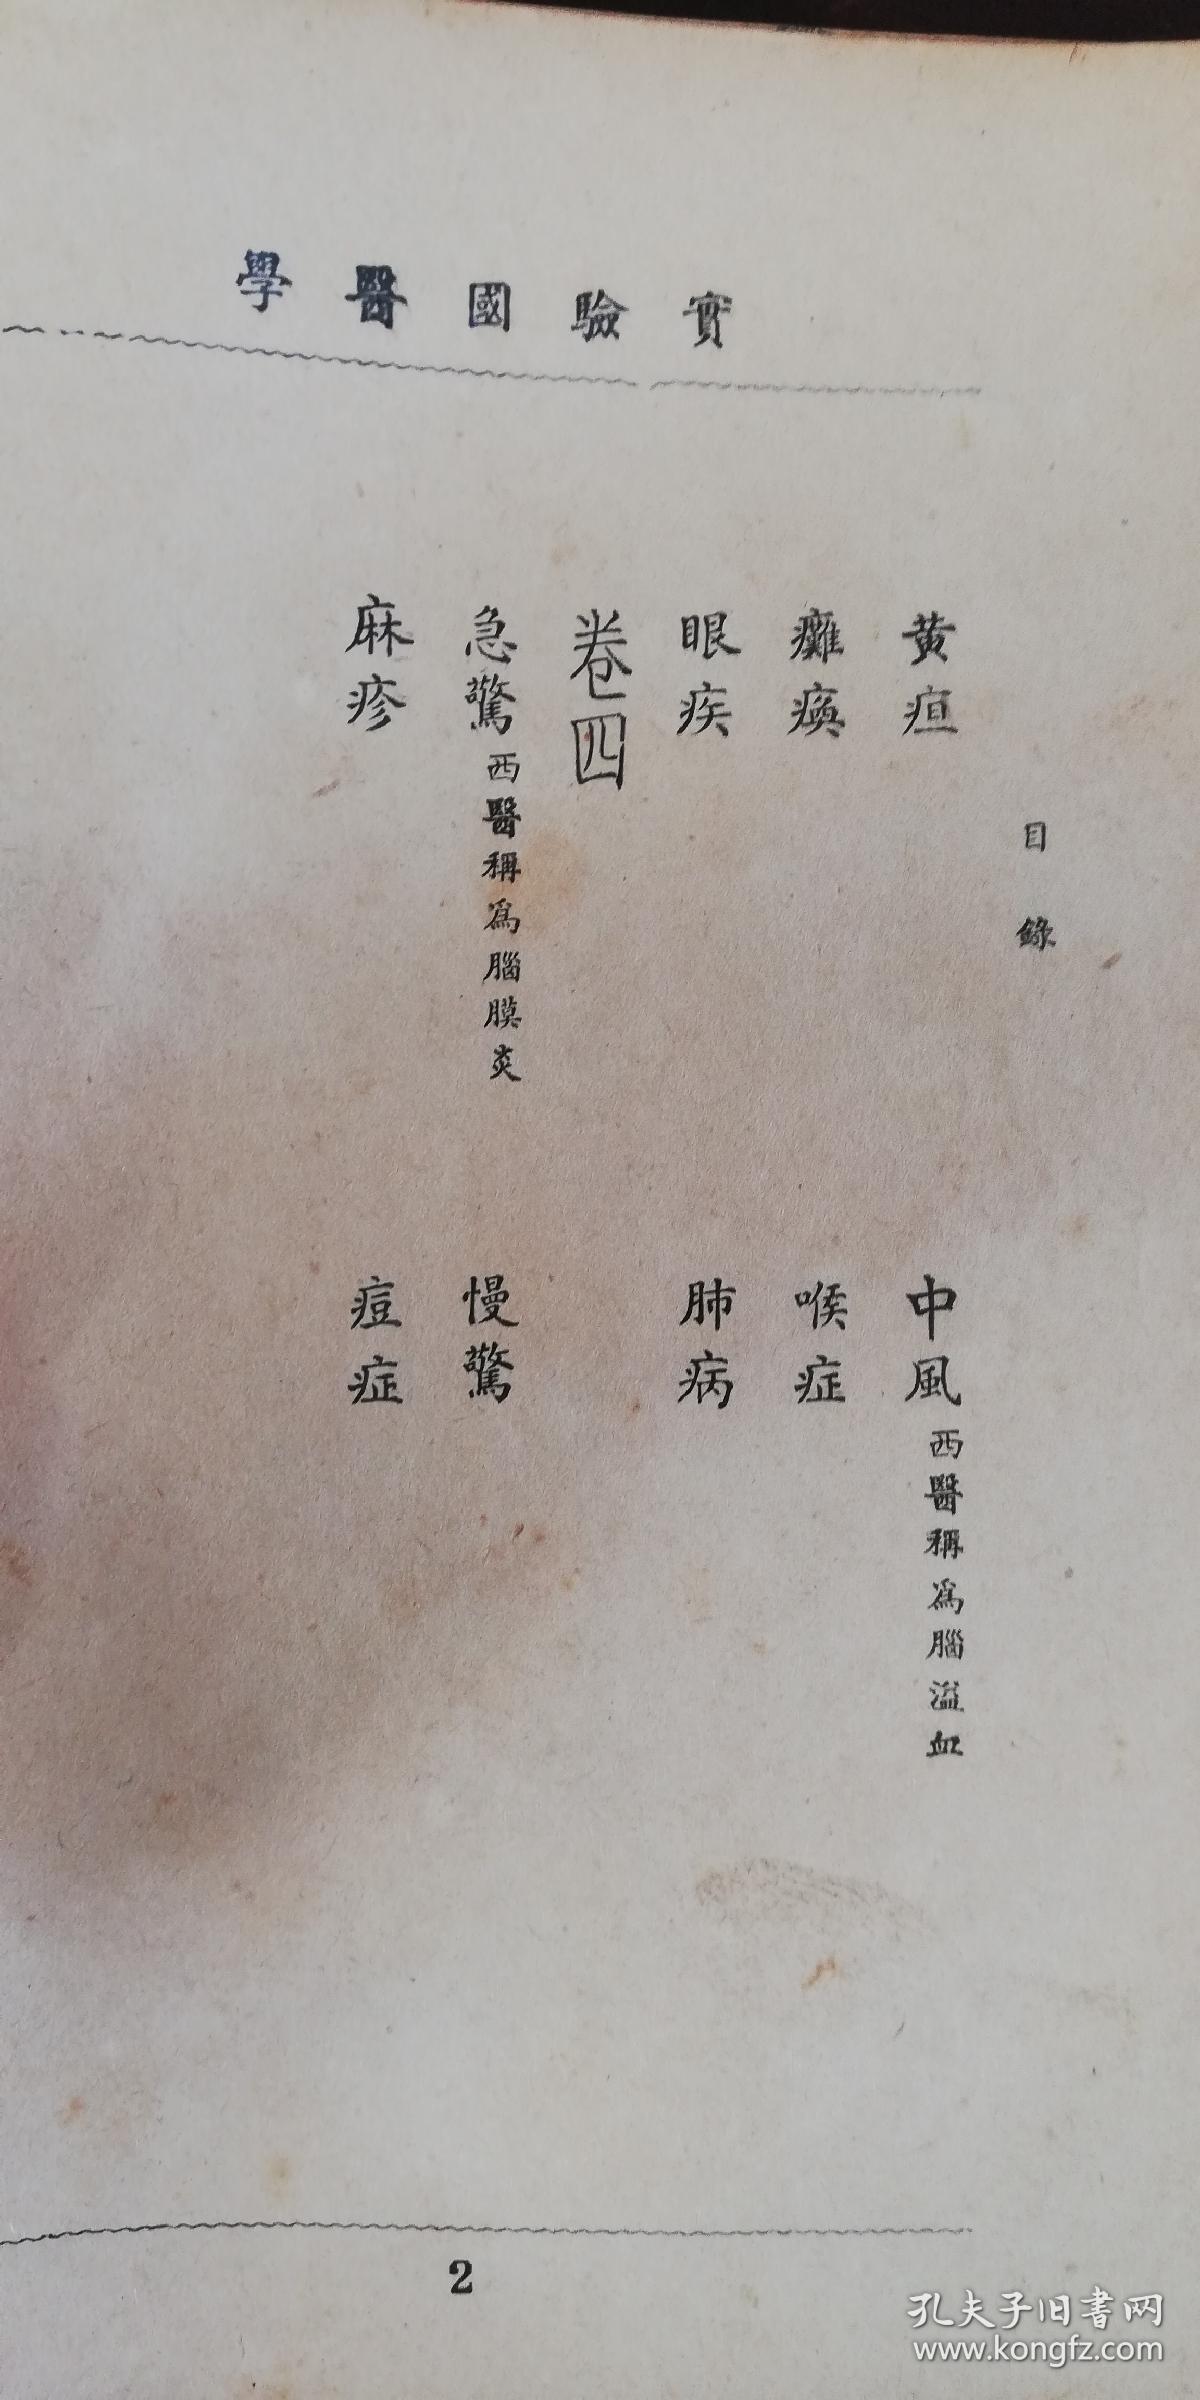 實驗國醫學
目錄
黃疸
中風西醫稱爲腦溢血
癱瘓
喉症
眼疾
肺病
卷四
急驚西醫稱爲腦膜炎
慢驚
麻疹
痘症
2
孔夫子旧書网
www.kongfz.com